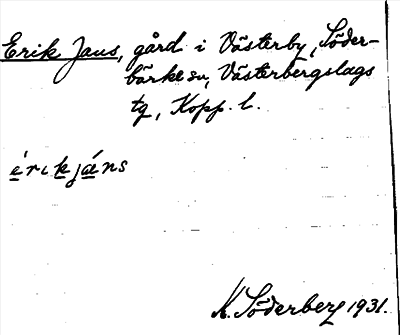 Erik Jans, gård i Västerby, Söder-
bärke sn, Västerbergslags
tg, Kopp. l.
érɩkjáns
K. Söderberg 1931.